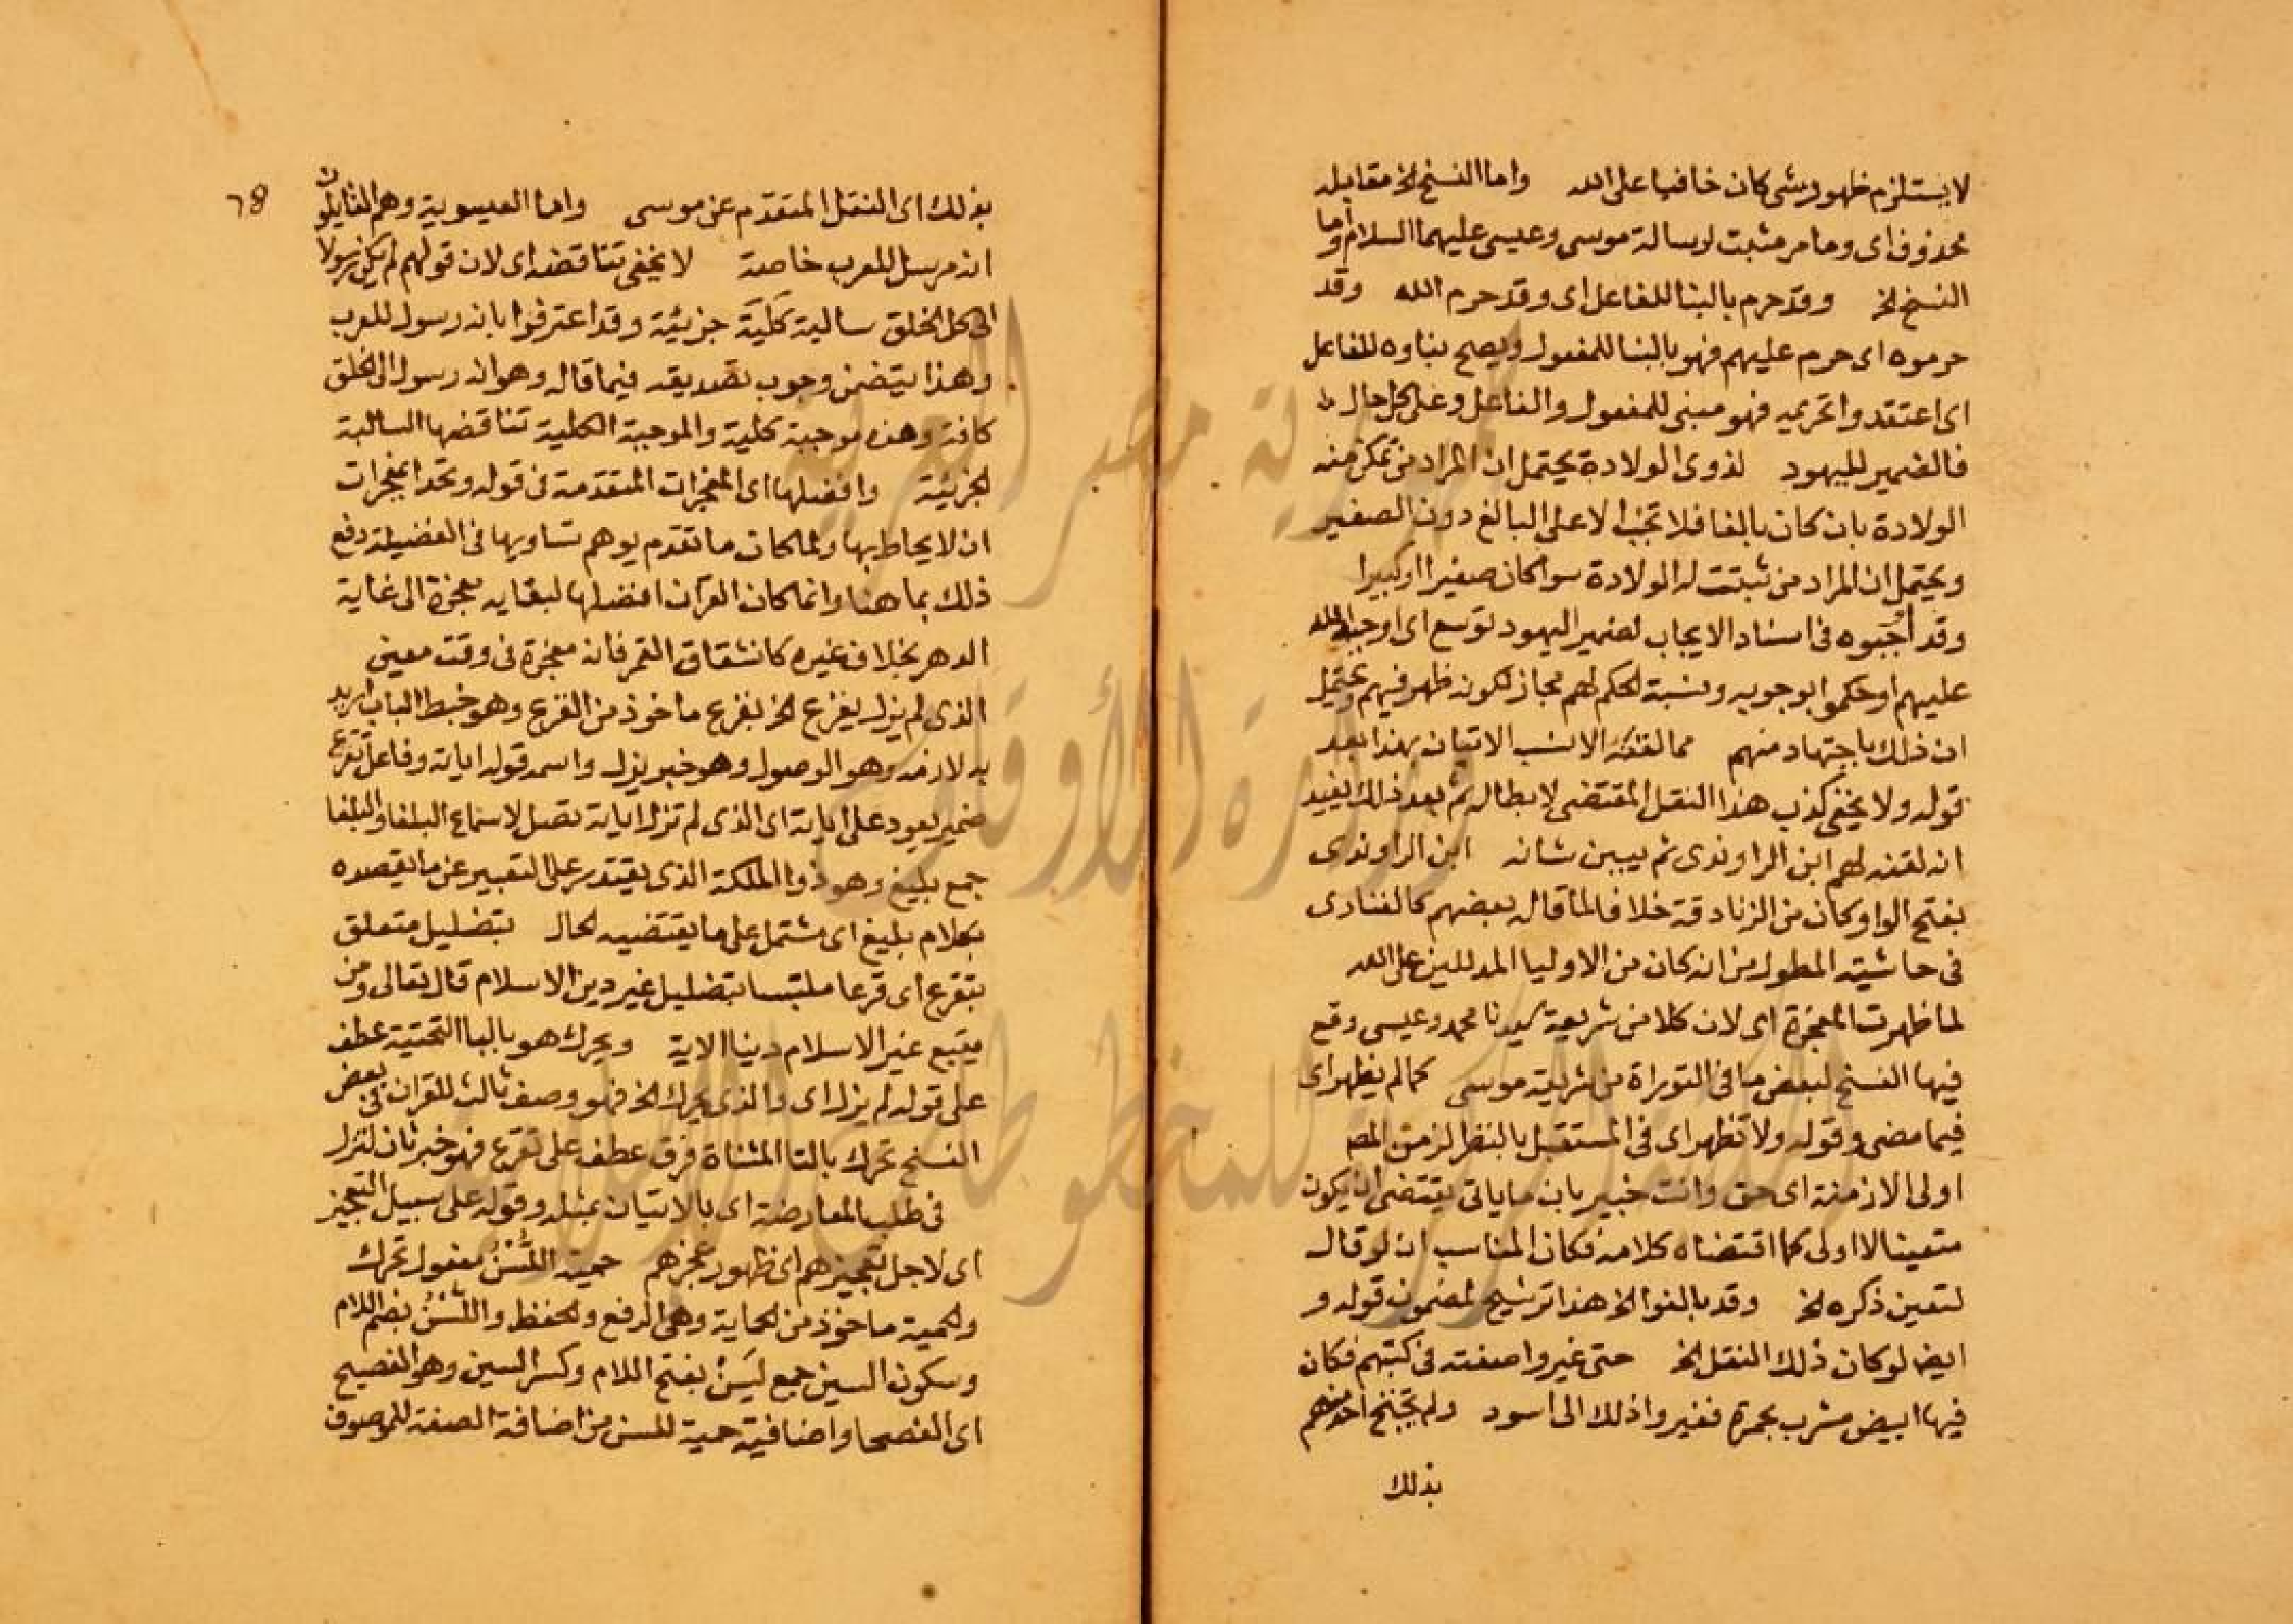 لا يستلزم ظهور شى كان خافيا على الله واما النسخ الخ مقابله
محذوف اى وما مر مثبت لرسالة موسى وعيسى عليهما السلام واما
النسخ الخ وقد حرم بالبنا للفاعل اى وقد حرم الله وقد
حرموه اى حرم عليهم فهو بالبنا للمفعول ويصح بناوه للفاعل
اى اعتقدوا تحريمه فهو مبنى للمفعول والفاعل وعلى كل حال
فالضمير لليهود لذوى الولادة يحتمل ان المراد من تمكن منه
الولادة بان كان بالغا فلا تجب الا على البالغ دون الصغير
ويحتمل ان المراد من ثبتت له الولادة سوا كان صغيرا او كبيرا
وقد أوجبوه فى اسناد الايجاب لضمير اليهود توسع اى اوجبه الله
عليهم او حكموا بوجوبه ونسبة الحكم لهم مجاز لكونه ظهر فيهم ويحتمل
ان ذلك باجتهاد منهم مما لقنه الانسب الاتيان بهذا بعد
قوله ولا يخفى كذب هذا النقل المقتضى لابطاله ثم بعد ذلك يفيد
انه لقنه لهم ابن الراوندى ثم يبين شانه ابن الراوندى
بفتح الواو وكان من الزنادقة خلافا لما قاله بعضهم كالفنادى
فى حاشيته المطول من انه كان من الاوليا المدللين على الله
لما ظهرت المعجزة اى لان كلا من شريعة سيدنا محمد وعيسى وقع
فيها النسخ لبعض ما فى التوراة من شريعة موسى كما لم يظهر اى
فيما مضى وقوله ولا تظهر اى فى المستقبل بالنظر لزمن المص
اولى الازمنة اى حق وانت خبير بان ما ياتى يقتضى ان يكون
متعينا لا اولى كما اقتضاه كلامه فكان المناسب ان لو قال
لتعين ذكره الخ وقد بالغوا الخ هذا ترشيح لمضمون قوله و
ايضا لو كان ذلك النقل الخ حتى غيروا صفته فى كتبهم فكان
فيها ابيض مشرب بحمرة فغيروا ذلك الى اسود ولم يحتج احد منهم
بذلك
٦٨
بذلك اى النقل المتقدم عن موسى واما العيسوية وهم القايلون
انه مرسل للعرب خاصة لا يخفى تناقضه اى لان قولهم لم يكن رسولا
الى كل الخلق سالبة كلية جزيئة وقد اعترفوا بانه رسول للعرب
وهذا يتضمن وجوب تصديقه فيما قاله وهو انه رسول الى الخلق
كافة وهذه موجبة كلية والموجبة الكلية تناقضها السالبة
الجزيئة وافضلها اى المعجزات المتقدمة فى قوله وتحدا بمعجزات
ان لا يحاط بها ولما كان ما تقدم يوهم تساويها فى الفضيلة دفع
ذلك بما هنا وانما كان القرآن افضلها لبقايه معجزة الى غاية
الدهر بخلاف غيره كانشقاق القمر فانه معجزة فى وقت معين
الذى لم يزل يقرع الخ يقرع ماخوذ من القرع وهو خبط الباب اريد
به لازمه وهو الوصول وهو خبر يزل واسمه قوله اياته وفاعل تقرع
ضمير يعود على اياته اى الذى لم تزل اياته تصل لاسماع البلغا والبلغا
جمع بليغ وهو ذوا الملكة الذى يقتدر على التعبير عن ما يقصده
بكلام بليغ اى مشتمل على ما يقتضيه الحال بتضليل متعلق
بتقرع اى قرعا ملتبسا بتضليل غير دين الاسلام قال تعالى ومن
يتبع غير الاسلام دينا الاية ويحرك هو باليا التحتية عطف
على قوله لم يزل اى والذى يحرك الخ فهو وصف ثالث للقران فى بعض
النسخ تحرك بالتا المثناة فوق عطف على تقرع فهو خبر ثان لتزل
فى طلب المعارضة اى بالاتيان بمثله وقوله على سبيل التعجيز
اى لاجل تعجيزهم اى ظهور عجزهم حمية اللُّسْنُ مفعول تحرك
والحمية ماخوذ من الحماية وهى الدفع والحفظ واللُّسْنُ بضم اللام
وسكون السين جمع لَسِنْ بفتح اللام وكسر السين وهو الفصيح
اى الفصحا واضافية حمية للسن من اضافة الصفة للموصوف